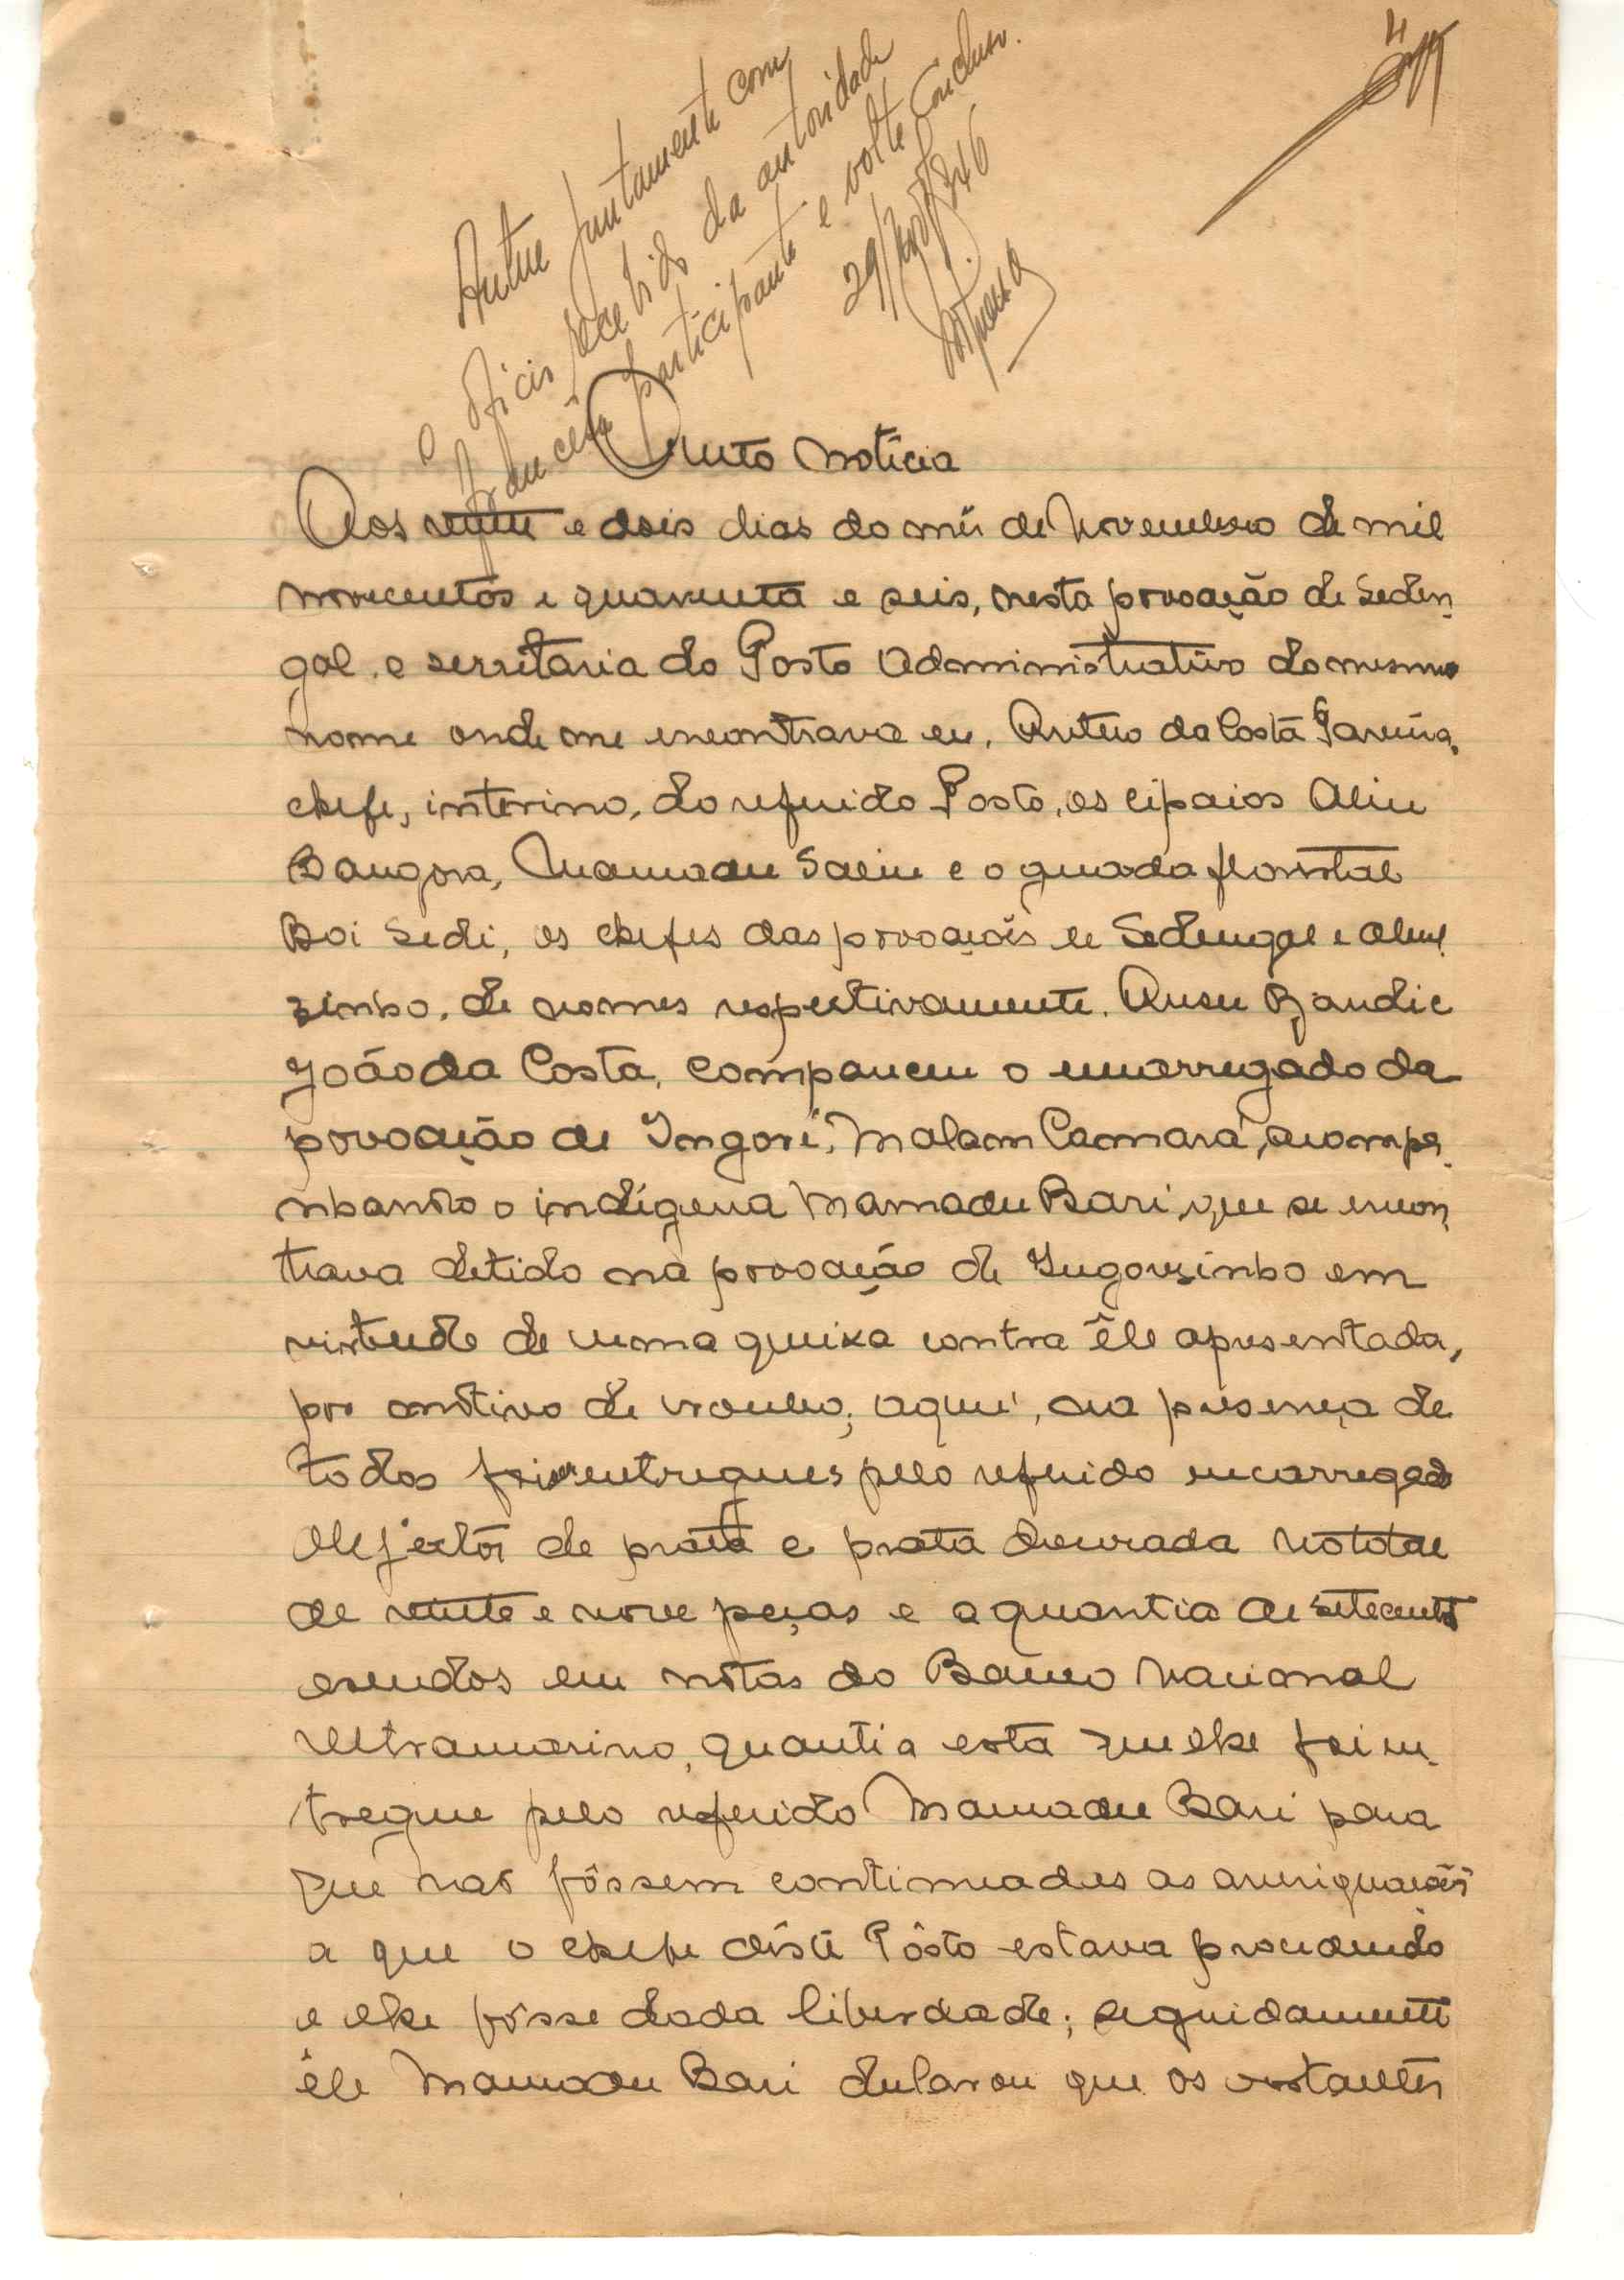 4
Autue juntamente com
o oficio recebido da autoridade
francêsa participante e volte concluso.
29/Nov/946
Auto notícia
Aos vinte e dois dias do mês de Novembro de mil
novecentos e quarenta e seis, nesta povoação de Seden-
gal e secretaria do Posto Administrativo do mesmo
nome onde me encontrava eu, Artur da Costa
chefe, interino, do referido Posto, os cipaios Aliu
Bangora, Mamadu Saliu e o guarda florestal
Boi Sedi, os chefes das povoações de Sedengal e
zinho, de nomes respectivamente, Ansu Bjandi e
João da Costa, compareceu o encarregado da
povoação de Ingoré, Malam Camará, acompa-
nhando o indígena Mamadu Bari, que se encon-
trava detido na povoação de Ingorezinho em
virtude de uma queixa contra êle apresentada,
por motivo de roubo; aqui, na presença de
todos foi entregues pelo referido encarregado
objectos de prata e prata dourada no total
de vinte e nove peças e a quantia de setecentos
escudos em notas do Banco Nacional
Ultramarino, quantia esta que lhe foi en-
tregue pelo referido Mamadu Bari para
que não fôssem continuadas as averiguações
a que o chefe dêste Pôsto estava procedendo
e lhe fôsse dada liberdade; seguidamente
êle Mamadu Bari declarou que os restantes